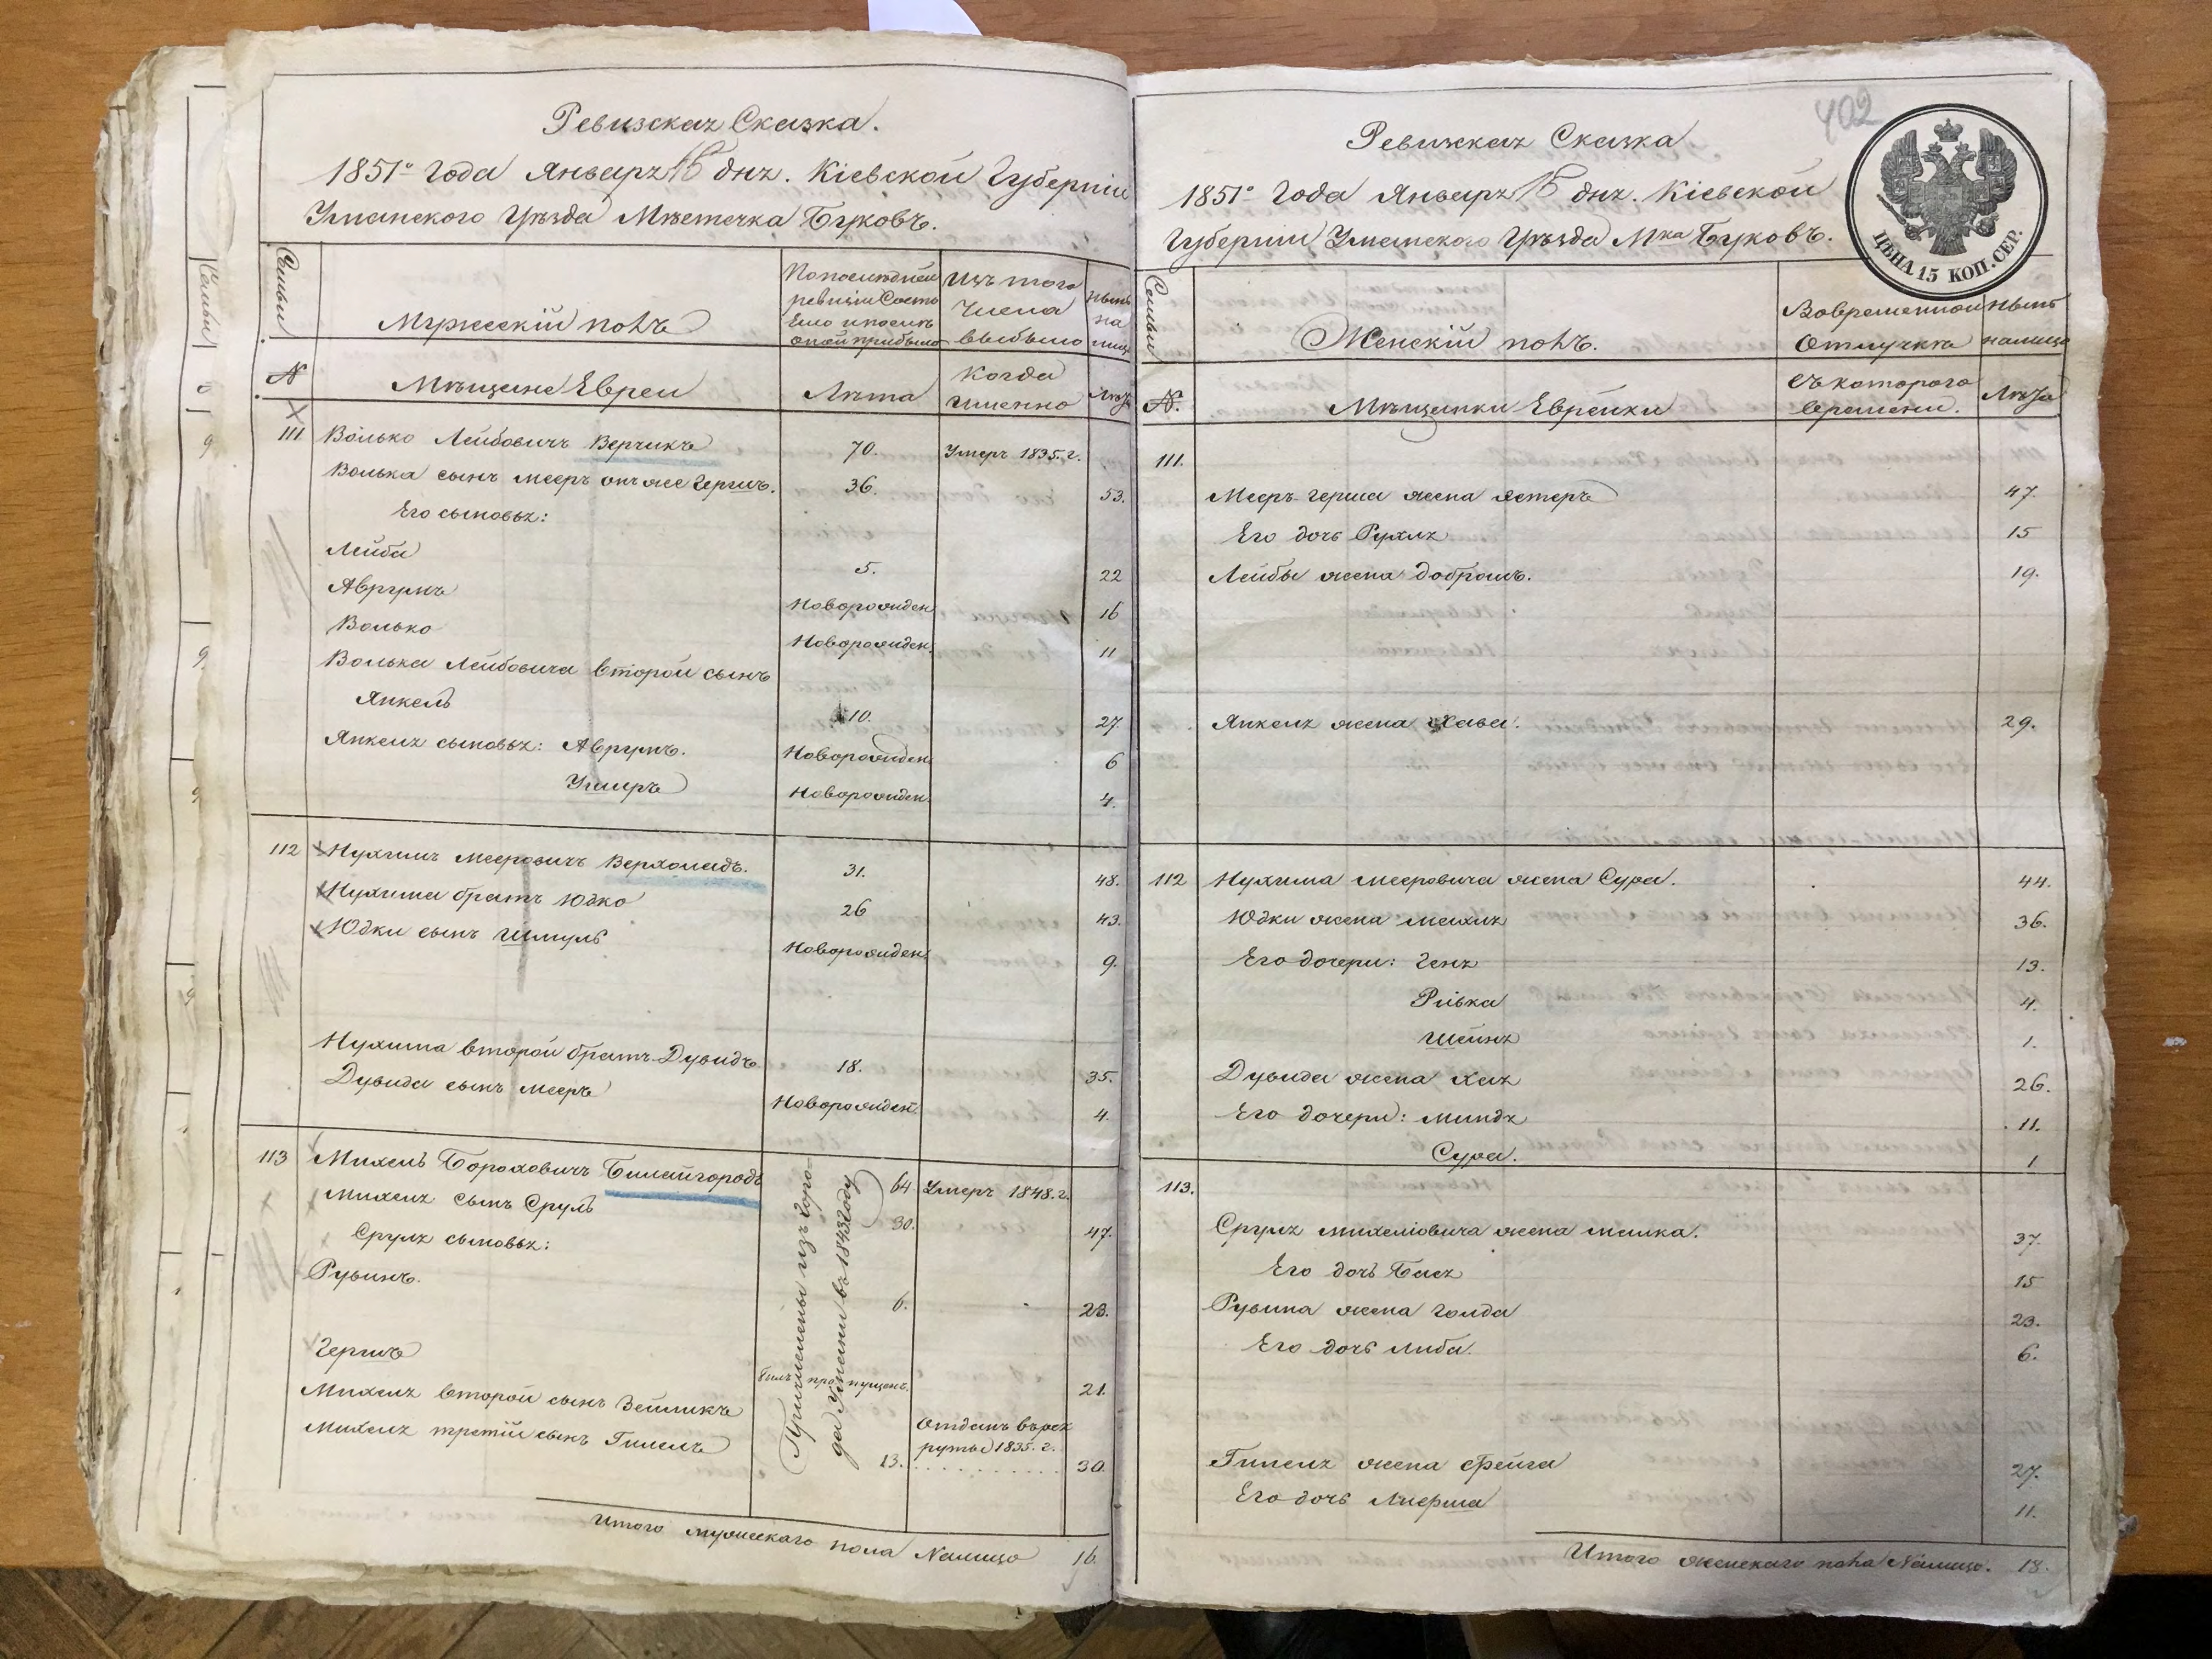 Семьи
9
9
9
9
Ревизская Сказка.
1851го Года Января 15 дня. Кіевской Губерніи
Уманского Уѣзда Мѣстечка Буковъ.
Семьи
Мужескій полъ
По последней
ревизіи Состо
яло и после
оной прибыло
Изъ того
Числа
выбыло
Нынѣ
на
лицо
№
Мѣщане Евреи
Лѣта
Когда
именно
Лѣта
111
Волько Лейбовичъ Верчикъ
70.
Умеръ 1835. г.
Волька сынъ Мееръ онъ же Гершъ.
36.
53.
Его сыновья:
Лейба
5.
22
Аврумъ
Новорожден.
16
Волько
Новорожден.
11
Волька Лейбовича второй сынъ
Янкель
10.
27.
Янкеля сыновья: Аврумъ.
Новорожден.
6
Ушеръ
Новорожден.
4.
112
Нухимъ Мееровичъ Верхоладъ.
31.
48.
Нухима братъ Юдко
26
43.
Юдки сынъ Шмуль
Новорожден.
9.
Нухима второй братъ Дувидъ.
18.
35.
Дувида сынъ Мееръ
Новорожден.
4.
113
Михель Бороховичъ Билайгородъ
64
Умеръ 1848. г.
Михеля сынъ Сруль
30.
47.
Сруля сыновья:
Рувинъ.
6.
23.
Гершъ
былъ пропущенъ.
21.
Михеля второй сынъ Зейликъ
Отданъ въ рек
руты 1835. г.
Михеля третій сынъ Гилель
13.
30.
Причислены изъ горо-
да Умани въ 1843 году
Итого мужескаго пола Налицо 16.
402
Ревизская Сказка
1851го Года Января 15 дня. Кіевской
Губерніи Уманского Уѣзда Мка Буковъ.
ЦѢНА 15 КОП. СЕР.
Семьи
Женскій полъ.
Во временной
Отлучкѣ
Нынѣ
налицо
№.
Мѣщанки Еврейки
Съ которого
времени.
Лѣта
111.
Меера Герша жена Эстеръ
47.
Его дочь Рухля
15
Лейбы жена Добрышъ.
19.
Янкеля жена Хава.
29.
112
Нухима Мееровича жена Сура.
44.
Юдки жена Махля
36.
Его дочери: Геня
13.
Ривка
4.
Шейня
1.
Дувида жена Хая
26.
Его дочери: Миндя
11.
Сура.
1
113.
Сруля Михелiовича жена Малка.
37.
Его дочь Бася
15
Рувина жена Голда
23.
Его дочь Либа.
6.
Гилеля жена Фрейга
27.
Его дочь
11.
Итого женскаго пола Налицо. 18.